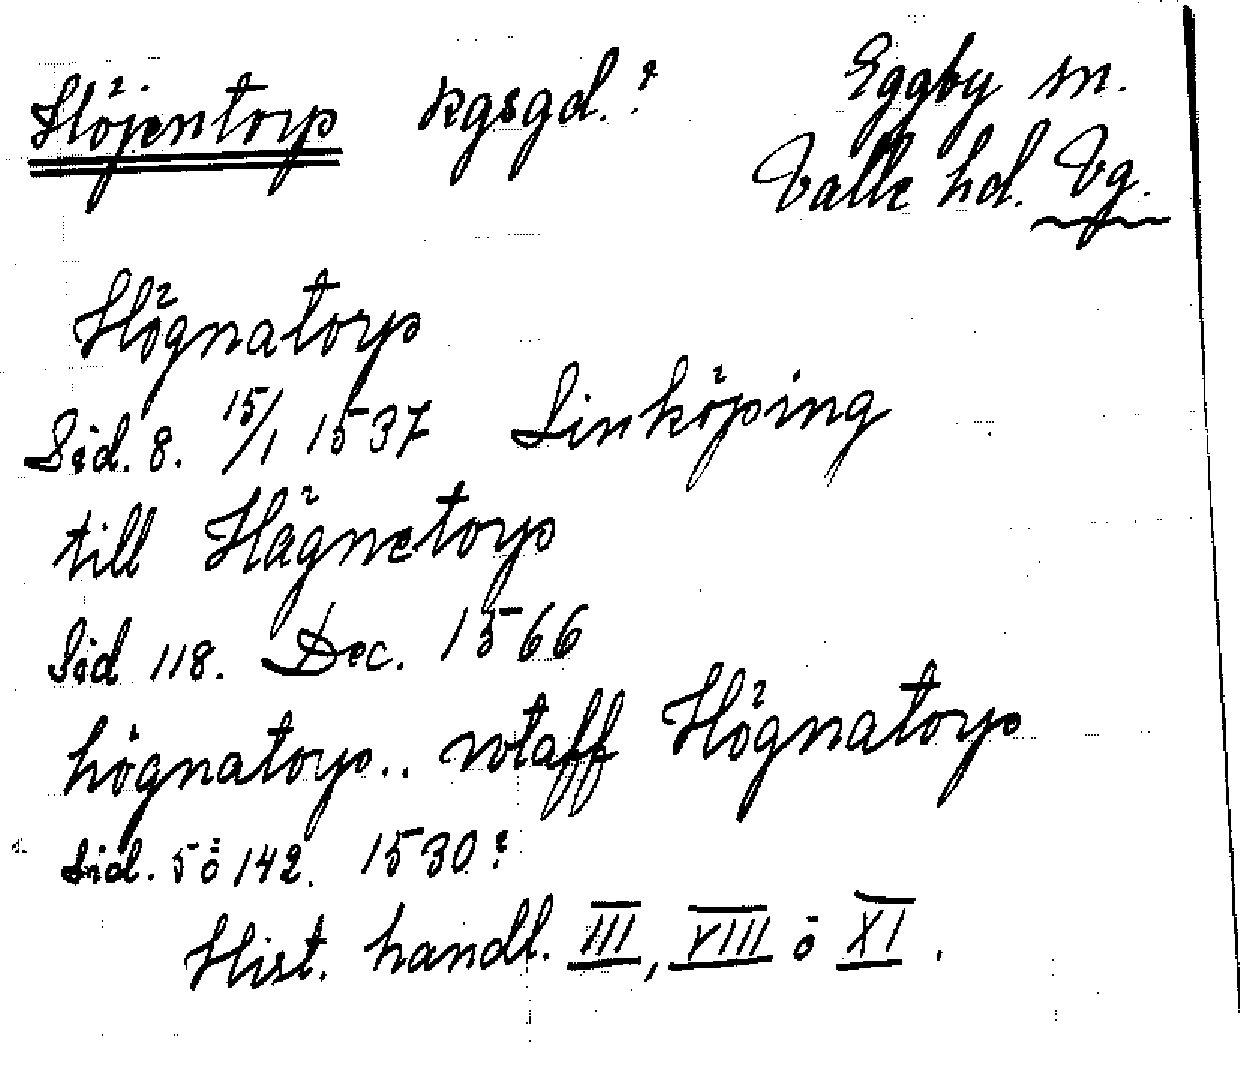 Höjentorp kgsgd.? Eggby sn.
Valle hd. Vg.
Högnatorp
Sid. 8. 15/1 1537 Linköping
till Hägnetorp
Sid 118. Dec. 1566
högnatorp.. wtaff Högnatorp
Sid. 5 o 142. 1530?
Hist. handl. III, VIII o XI.